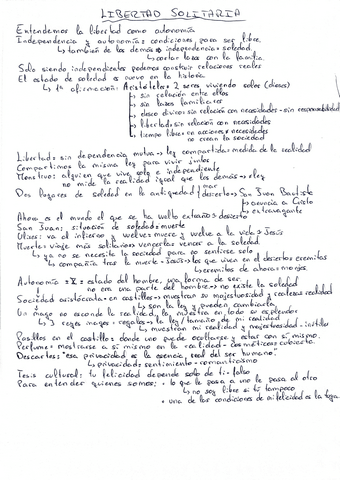 LIBERTAD SOLITARIA
Entendemos la libertad como autonomía
Independencia y autonomía: condiciones para ser libre.
↳ también de los demás → independencia = soledad.
↳ cortar lazos con la familia.
Solo siendo independientes podemos construir relaciones reales
El estado de soledad es nuevo en la historia
↳ 1ª afirmación: Aristóteles → 2 seres viviendo solos (dioses)
↳ sin relación entre ellos
↳ sin lazos familiares
↳ deseo divino: sin relación con necesidades - sin responsabilidad
↳ libertad: sin relación con necesidades
↳ tiempo libre: no acciones x necesidades
no crean la sociedad
Libertad: sin dependencia mutua → ley compartida: medida de la realidad
Compartimos la misma ley para vivir juntos
Monstruo: alguien que vive solo e independiente
no mide la realidad igual que los demás → ley
Dos lugares de soledad en la antigüedad mar
desierto → San Juan Bautista
↳ anuncia a Cristo
↳ extravagante
Ahora es el mundo el que se ha vuelto extraño → desierto
San Juan: situación de soledad = muerte
Ulises: va al infierno y vuelve = muere y vuelve a la vida → Jesús
Muerte: viaje más solitario → vencerla es vencer a la soledad
↳ ya no se necesita la sociedad para no sentirse solo
↳ compañía tras la muerte → Jesús → los que viven en el desierto eremitas
↳ ermitas de ahora = monjes.
Autonomía = estado del hombre, una forma de ser
no era una parte del hombre → no existe la soledad
Sociedad aristócrata: en castillos → muestran su majestuosidad y realeza = realidad
↳ son la ley y pueden cambiarla
Un mago no esconde la realidad, la muestra en todo su esplendor
↳ 3 reyes magos: regalos → la ley / tamaño de mi realidad
↳ muestran mi realidad y majestuosidad - inútiles
Pasillos en el castillo: donde uno puede ocultarse y estar con sí mismo.
Perfume = mostrarse a sí mismo en la realidad - cosméticos: cubierto.
Descartes: "esa privacidad es la esencia real del ser humano"
↳ privacidad: sentimiento - romanticismo
Tesis cultural: tu felicidad depende solo de ti - falso
Para entender quienes somos: • lo que le pasa a uno le pasa al otro
↳ no soy libre si tú tampoco
• una de las condiciones de mi felicidad es la tuya